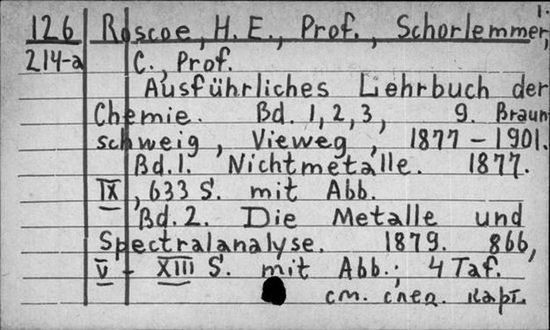 1.
126 Roscoe, H. E., Prof., Schorlemmer,
214-a C., Prof.
Ausführliches Lehrbuch der
Chemie. Bd. 1, 2, 3, 9. Braun
schweig, Vieweg, 1877-1901.
Bd. 1. Nichtmetalle. 1877.
IX, 633 S. mit Abb.
Bd. 2. Die Metalle und
Spectralanalyse. 1879. 866,
V - XIII S. mit Abb.; 4 Taf.
см. след. карт.